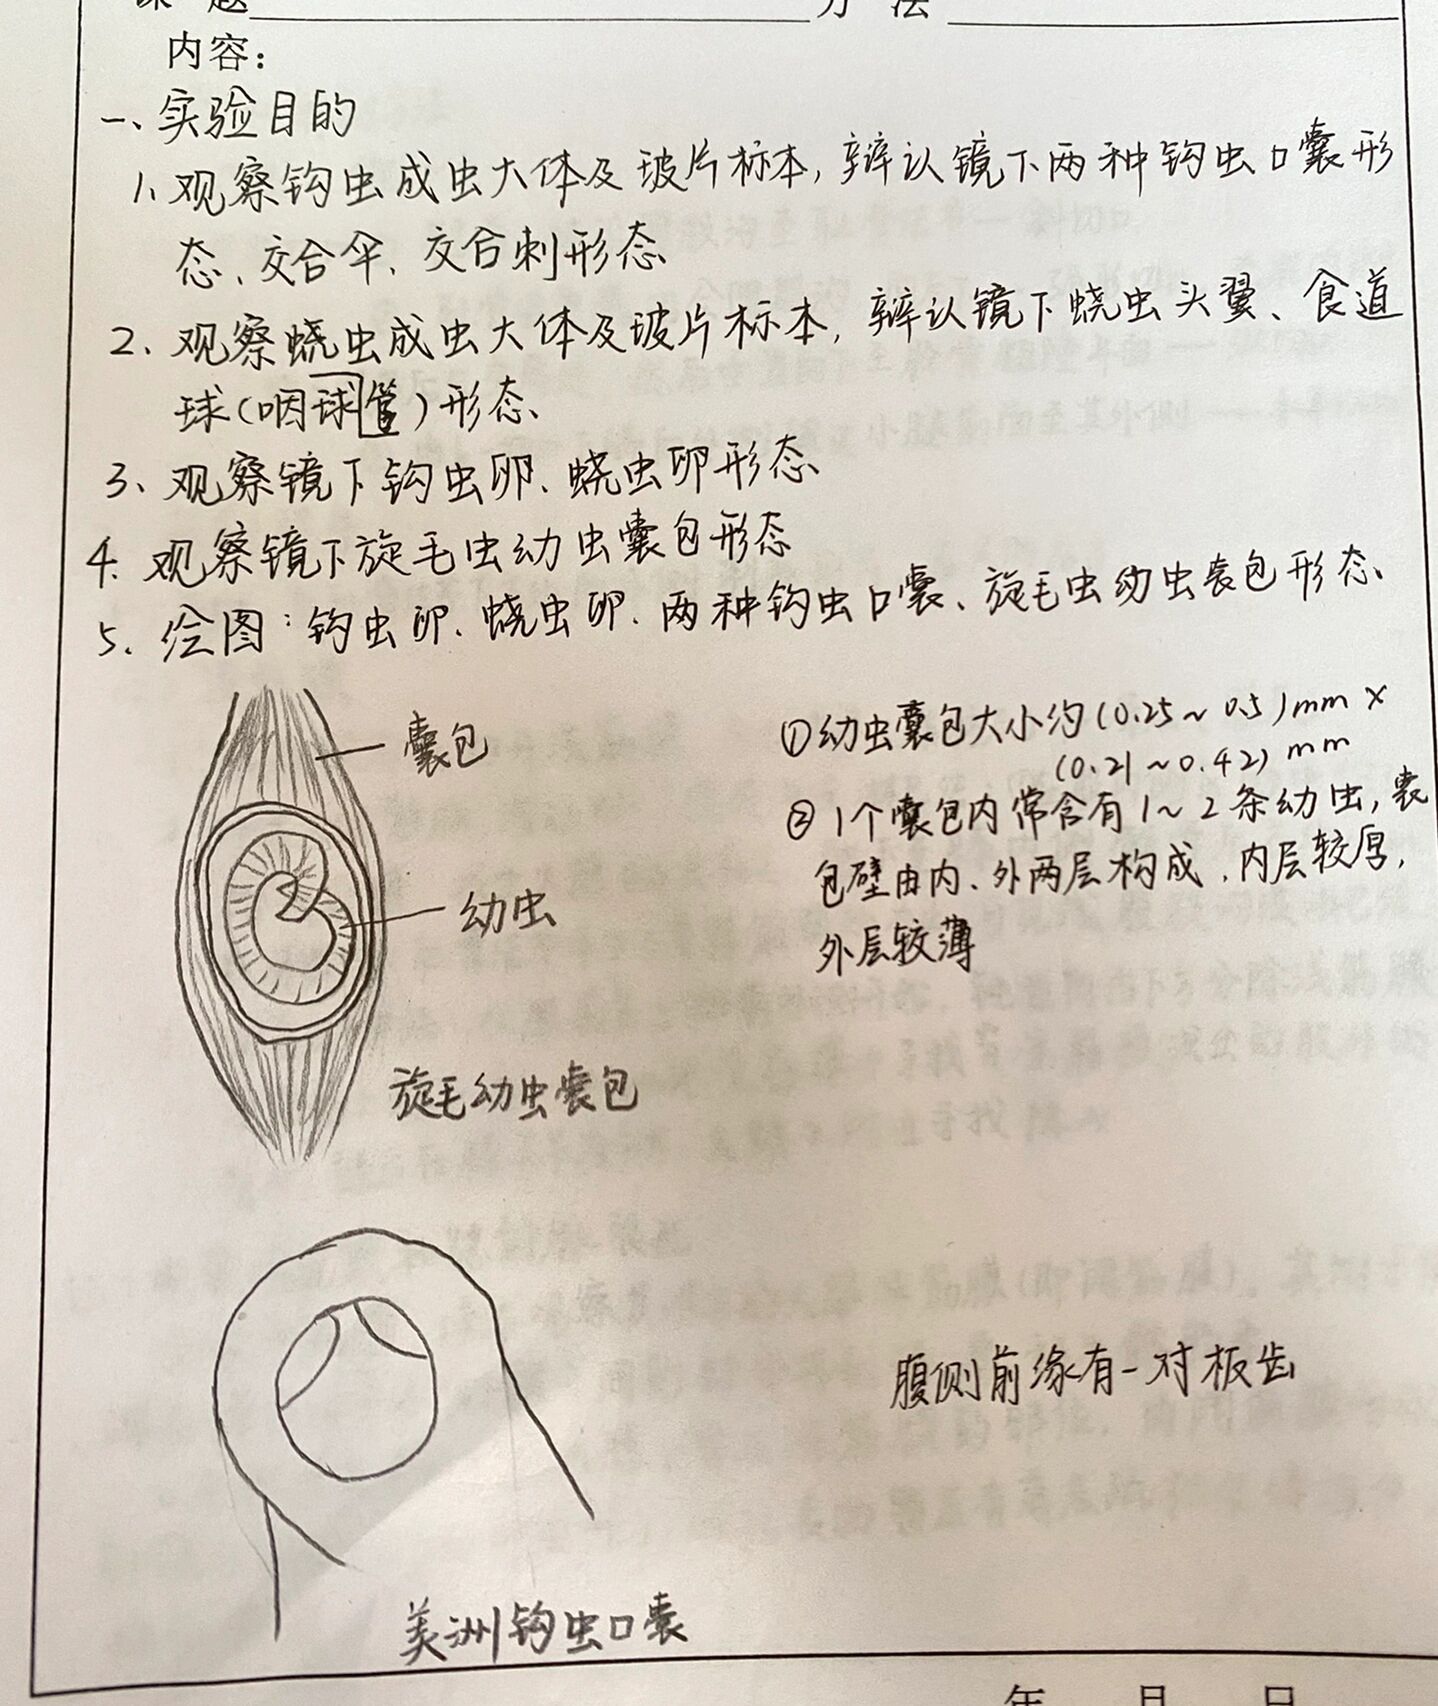 课 题 方 法
内容：
一、实验目的
1、观察钩虫成虫大体及玻片标本，辨认镜下两种钩虫口囊形
态、交合伞、交合刺形态、
2、观察蛲虫成虫大体及玻片标本，辨认镜下蛲虫头翼、食道
球（咽球管）形态、
3、观察镜下钩虫卵、蛲虫卵形态、
4、观察镜下旋毛虫幼虫囊包形态
5、绘图：钩虫卵、蛲虫卵、两种钩虫口囊、旋毛虫幼虫囊包形态、
囊包
①幼虫囊包大小约（0.25～0.5）mm×
（0.21～0.42）mm
②1个囊包内常含有1～2条幼虫，囊
包壁由内、外两层构成，内层较厚，
外层较薄
幼虫
旋毛幼虫囊包
腹侧前缘有一对板齿
美洲钩虫口囊
年 月 日